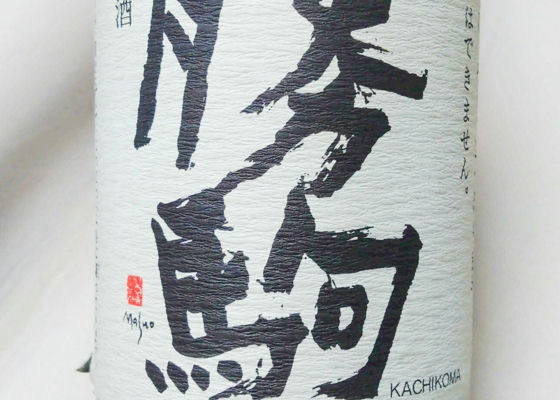 酒
勝駒
ありません。
Masuo
KACHIKOMA